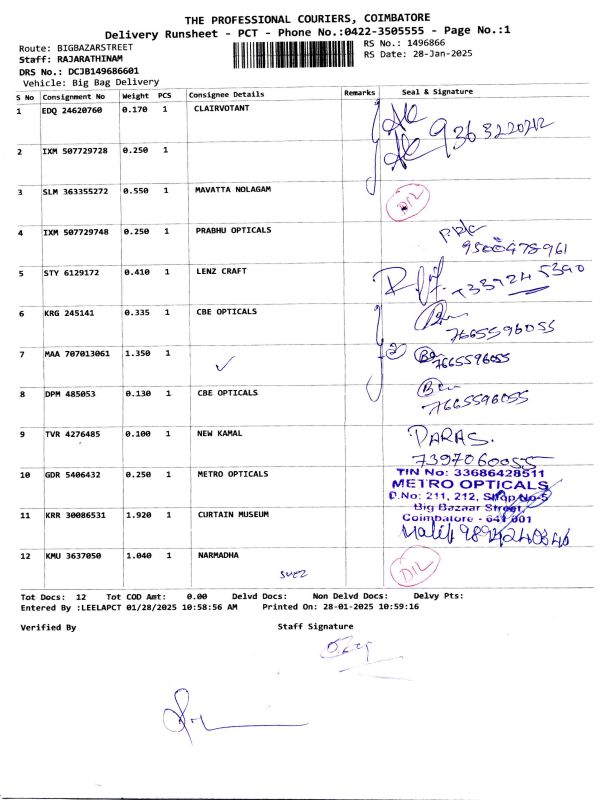 THE PROFESSIONAL COURIERS, COIMBATORE
Delivery Runsheet - PCT - Phone No.:0422-3505555 - Page No.:1
Route: BIGBAZARSTREET
RS No.: 1496866
Staff: RAJARATHINAM
RS Date: 28-Jan-2025
DRS No.: DCJB149686601
Vehicle: Big Bag Delivery
S No Consignment No Weight PCS Consignee Details Remarks Seal & Signature
1 EDQ 24620760 0.170 1 CLAIRVOTANT
2 IXM 507729728 0.250 1
3 SLM 363355272 0.550 1 MAVATTA NOLAGAM
D/L
4 IXM 507729748 0.250 1 PRABHU OPTICALS
5 STY 6129172 0.410 1 LENZ CRAFT
6 KRG 245141 0.335 1 CBE OPTICALS
7665596055
7 MAA 707013061 1.350 1
7665596055
8 DPM 485053 0.130 1 CBE OPTICALS
7665596055
9 TVR 4276485 0.100 1 NEW KAMAL PARAS.
7397060055
10 GDR 5406432 0.250 1 METRO OPTICALS
TIN No: 33686428511
METRO OPTICALS
D.No: 211, 212, Shop No-5
Big Bazaar Street,
Coimbatore - 641 001
11 KRR 30086531 1.920 1 CURTAIN MUSEUM
Malik
12 KMU 3637050 1.040 1 NARMADHA
D/L
Tot Docs: 12 Tot COD Amt: 0.00 Delvd Docs: Non Delvd Docs: Delvy Pts:
Entered By :LEELAPCT 01/28/2025 10:58:56 AM Printed On: 28-01-2025 10:59:16
Verified By Staff Signature